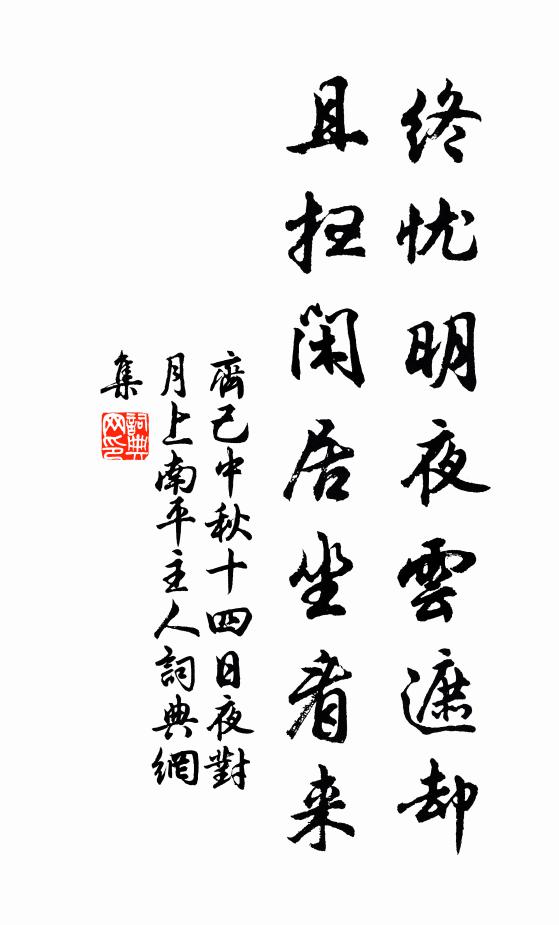 终忧明夜雲遮却
且扫闲居坐看来
齊己中秋十四日夜對
月上南平主人詞典網
集
詞典网印